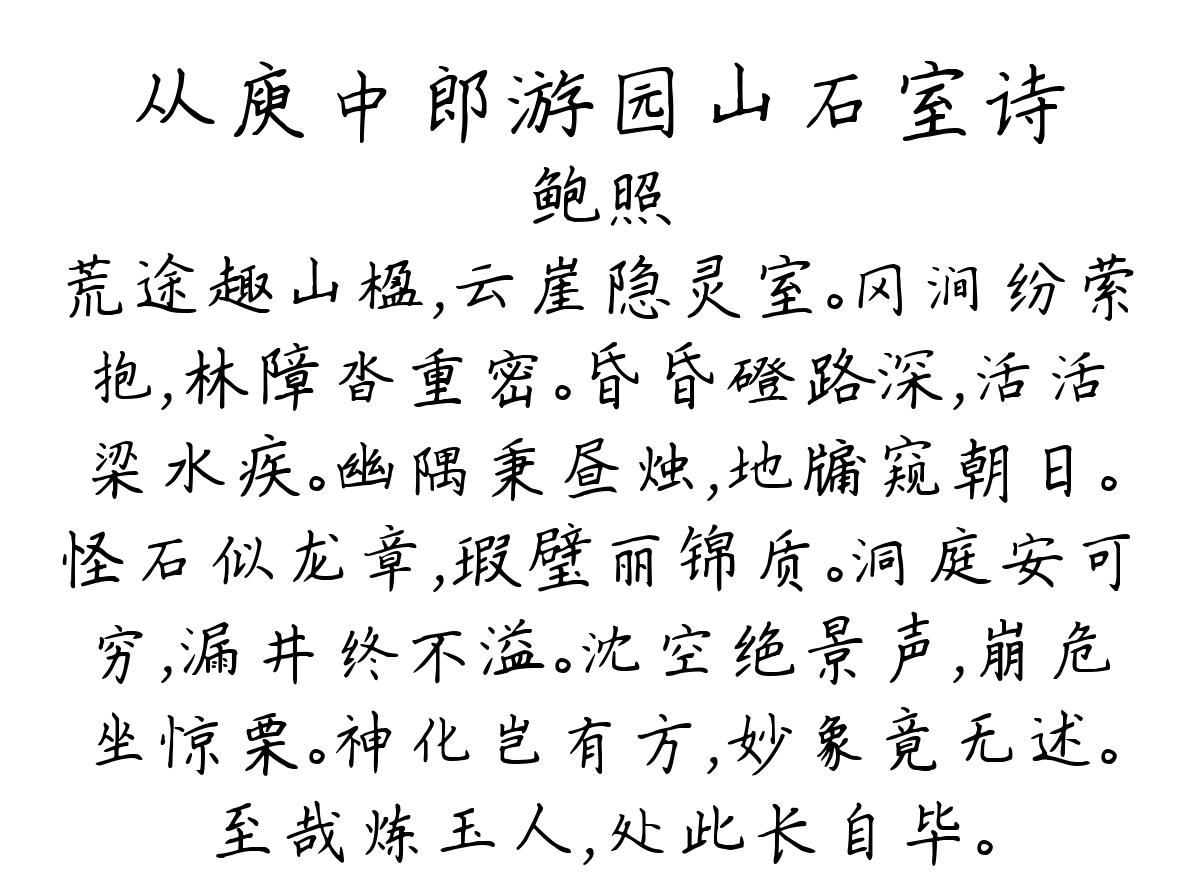 从庾中郎游园山石室诗
鲍照
荒途趣山楹,云崖隐灵室。冈涧纷萦
抱,林障沓重密。昏昏磴路深,活活
梁水疾。幽隅秉昼烛,地牖窥朝日。
怪石似龙章,瑕璧丽锦质。洞庭安可
穷,漏井终不溢。沈空绝景声,崩危
坐惊栗。神化岂有方,妙象竟无述。
至哉炼玉人,处此长自毕。